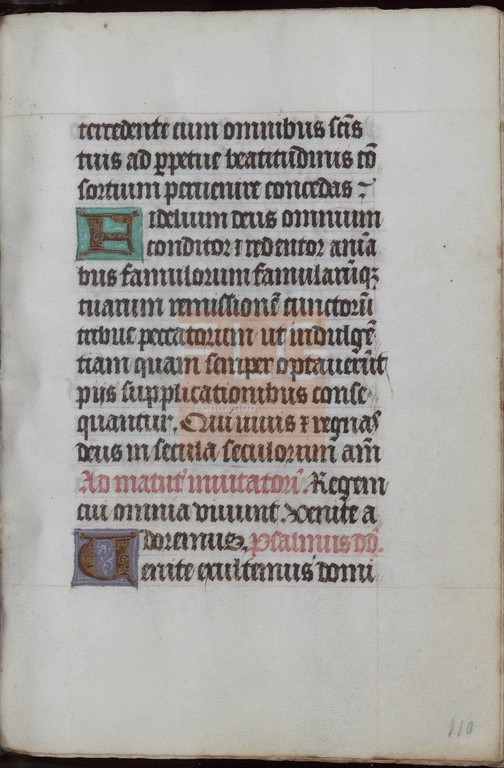 tercedente cum omnibus scīs
tuis ad ꝑpetue beatitudinis cō
sortium peruenire concedas ⁊
Fidelium deus omnium
conditor ⁊ redemtor anīa
bus famulorum famularūq₃
tuarum remissionē cunctorū
tribue peccatorum ut indulgē
tiam quam semper optauerūt
pijs supplicationibus conse
quantur. Qui uiuis ⁊ regnas
deus in secula seculorum am̄
Ad matut̄ inuitatorī. Regem
cui omnia viuunt. Venite a
doremus. Psalmus dd̄.
Uenite exultemus domi
110